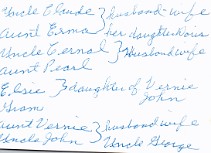 Uncle Claude } husband-wife
Aunt Erma } her daughter Doris
Uncle Cernal } Husband wife
Aunt Pearl
Elsie } daughter of Vernie
John
Aunt Vernie } husband wife
Uncle John Uncle George